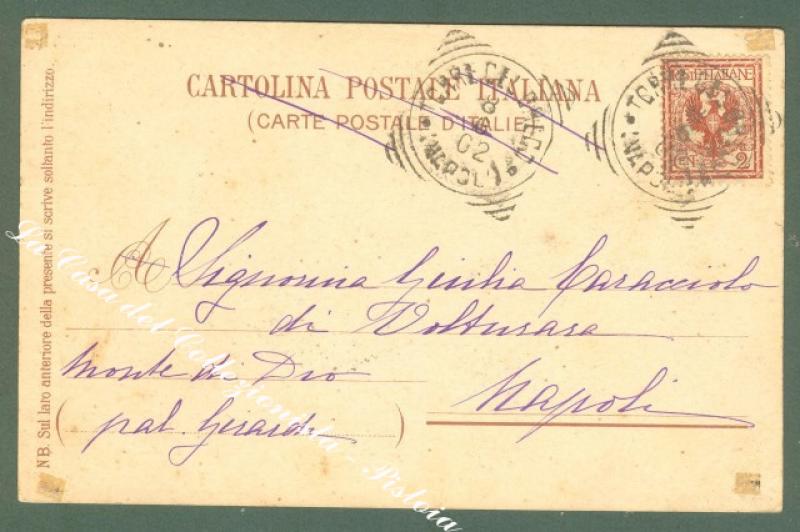 CARTOLINA POSTALE ITALIANA
(CARTE POSTALE D'ITALIE)
POSTE ITALIANE
CEN. 2
8
02
(NAPOLI)
(NAPOLI)
A Signorina Giulia Caracciolo
di Volturara
Monte di Dio
Napoli
pal. Girardi
NB. Sul lato anteriore della presente si scrive soltanto l'indirizzo.
La Casa del Collezionista - Pistoia